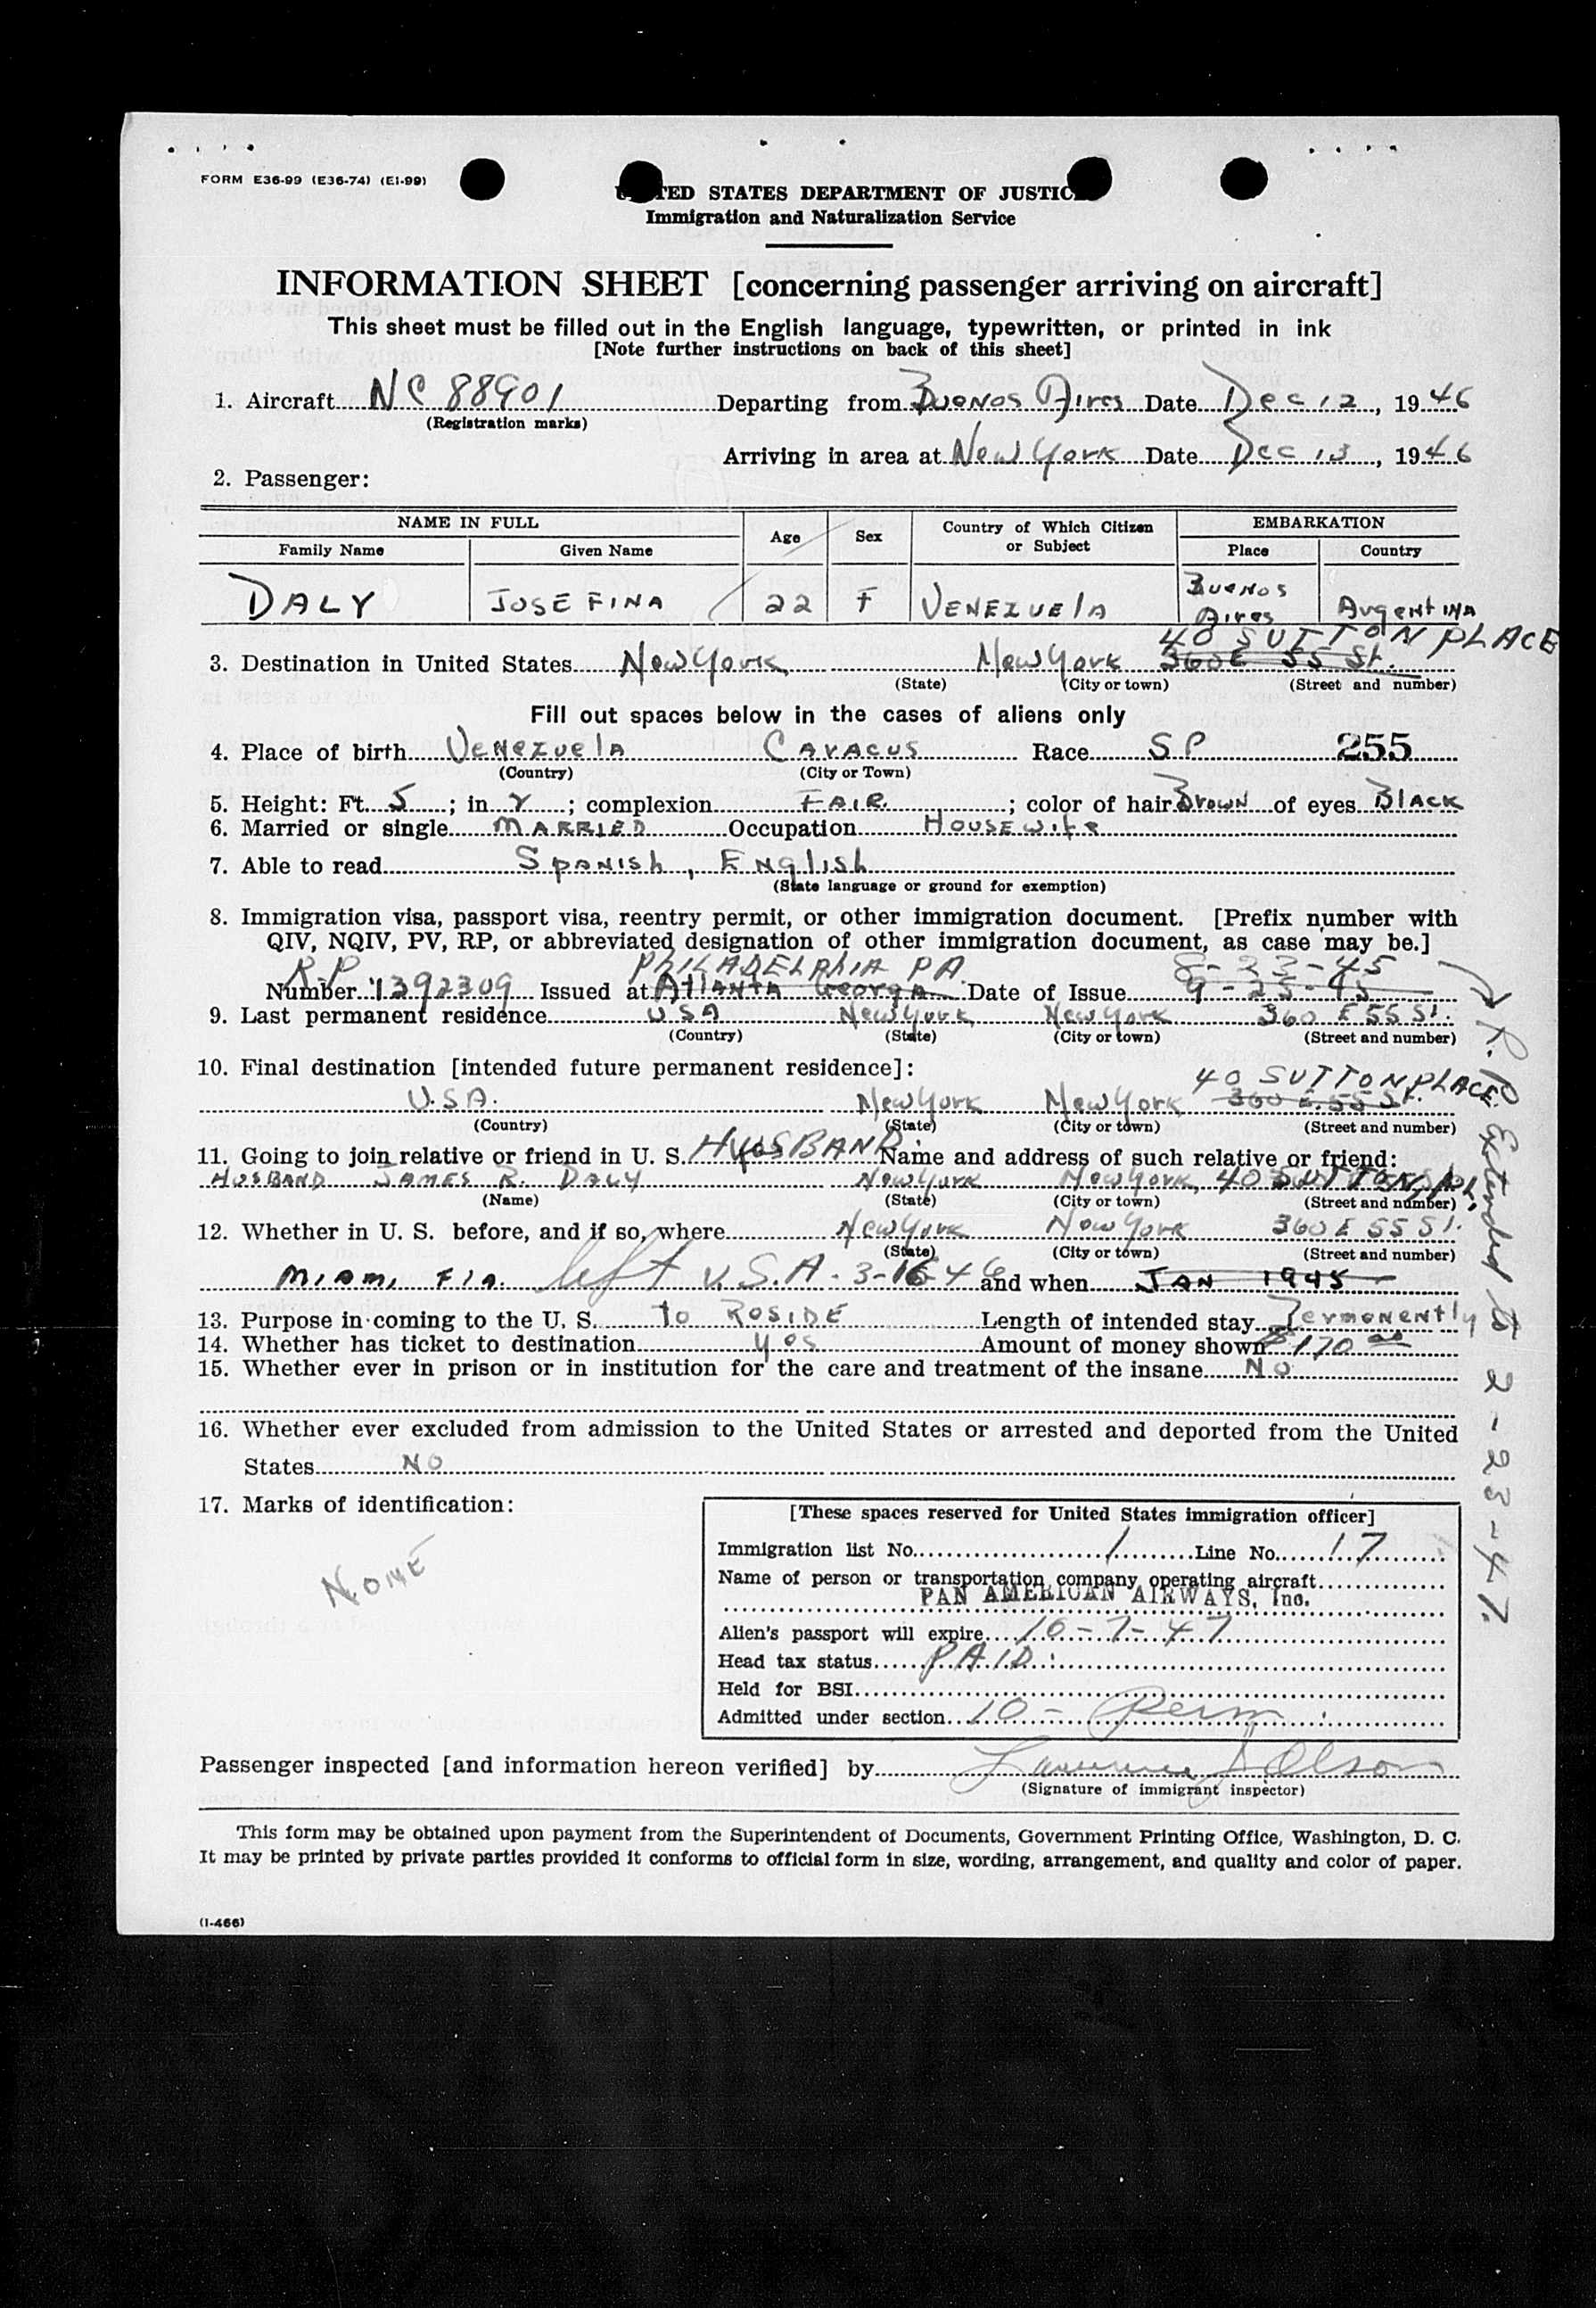 FORM E36-99 (E36-74) (EI-99)
UNITED STATES DEPARTMENT OF JUSTICE
Immigration and Naturalization Service
INFORMATION SHEET [concerning passenger arriving on aircraft]
This sheet must be filled out in the English language, typewritten, or printed in ink
[Note further instructions on back of this sheet]
1. Aircraft NC 88901 Departing from Buenos Aires Date Dec 12, 1946
(Registration marks)
Arriving in area at New York Date Dec 13, 1946
2. Passenger:
NAME IN FULL Age Sex Country of Which Citizen or Subject EMBARKATION
Family Name Given Name Place Country
DALY JOSEFINA 22 F VENEZUELA Buenos Aires Argentina
40 SUTTON PLACE
3. Destination in United States New York New York 360 E 55 St.
(State) (City or town) (Street and number)
Fill out spaces below in the cases of aliens only
4. Place of birth Venezuela Caracus Race SP 255
(Country) (City or Town)
5. Height: Ft. 5; in 2; complexion FAIR; color of hair Brown of eyes Black
6. Married or single MARRIED Occupation Housewife
7. Able to read Spanish, English
(State language or ground for exemption)
8. Immigration visa, passport visa, reentry permit, or other immigration document. [Prefix number with
QIV, NQIV, PV, RP, or abbreviated designation of other immigration document, as case may be.]
R-P PHILADELPHIA PA. 8-23-45
Number 1392309 Issued at Atlanta Georga Date of Issue 9-25-45
9. Last permanent residence USA New York New York 360 E 55 St.
(Country) (State) (City or town) (Street and number)
10. Final destination [intended future permanent residence]:
40 SUTTON PLACE
U.S.A. New York New York 360 E. 55 St.
(Country) (State) (City or town) (Street and number)
11. Going to join relative or friend in U. S. HUSBAND. Name and address of such relative or friend:
HUSBAND JAMES R. DALY New York New York, 40 SUTTON PL.
(Name) (State) (City or town) (Street and number)
12. Whether in U. S. before, and if so, where New York New York 360 E 55 St.
(State) (City or town) (Street and number)
Miami Fla. left U.S.A. 3-16-46 and when JAN 1945
13. Purpose in coming to the U. S. to RoSIDE Length of intended stay Permonently
14. Whether has ticket to destination yes Amount of money shown $170.00
15. Whether ever in prison or in institution for the care and treatment of the insane No
16. Whether ever excluded from admission to the United States or arrested and deported from the United
States NO
17. Marks of identification:
None
[These spaces reserved for United States immigration officer]
Immigration list No. 1 Line No. 17
Name of person or transportation company operating aircraft
PAN AMERICAN AIRWAYS, Inc.
Alien's passport will expire 10-7-47
Head tax status PAID.
Held for BSI
Admitted under section 10 - Perm
R.P. Extended to 2-23-47.
Passenger inspected [and information hereon verified] by Lawrence J Olson
(Signature of immigrant inspector)
This form may be obtained upon payment from the Superintendent of Documents, Government Printing Office, Washington, D. C.
It may be printed by private parties provided it conforms to official form in size, wording, arrangement, and quality and color of paper.
(I-466)